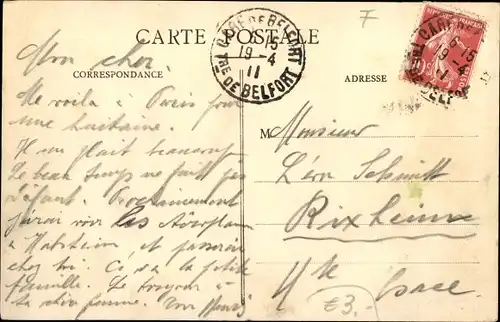 CARTE POSTALE
CORRESPONDANCE
ADRESSE
GARE DE BELFORT
8-15
19-4
11
TRE DE BELFORT
F
Mon cher,
Me voilà à Paris pour
une huitaine.
Il me plait beaucoup
Le beau temps ne fait pas
défaut. Prochainement
j'irai voir les Aéroplanes
à Habsheim et passerai
chez toi. Ci va la petite
famille. Le bonjour à
ta chère femme. Ton Henri
M
Monsieur
Léon Schmitt
Rixheim
Hte Alsace
€3,-